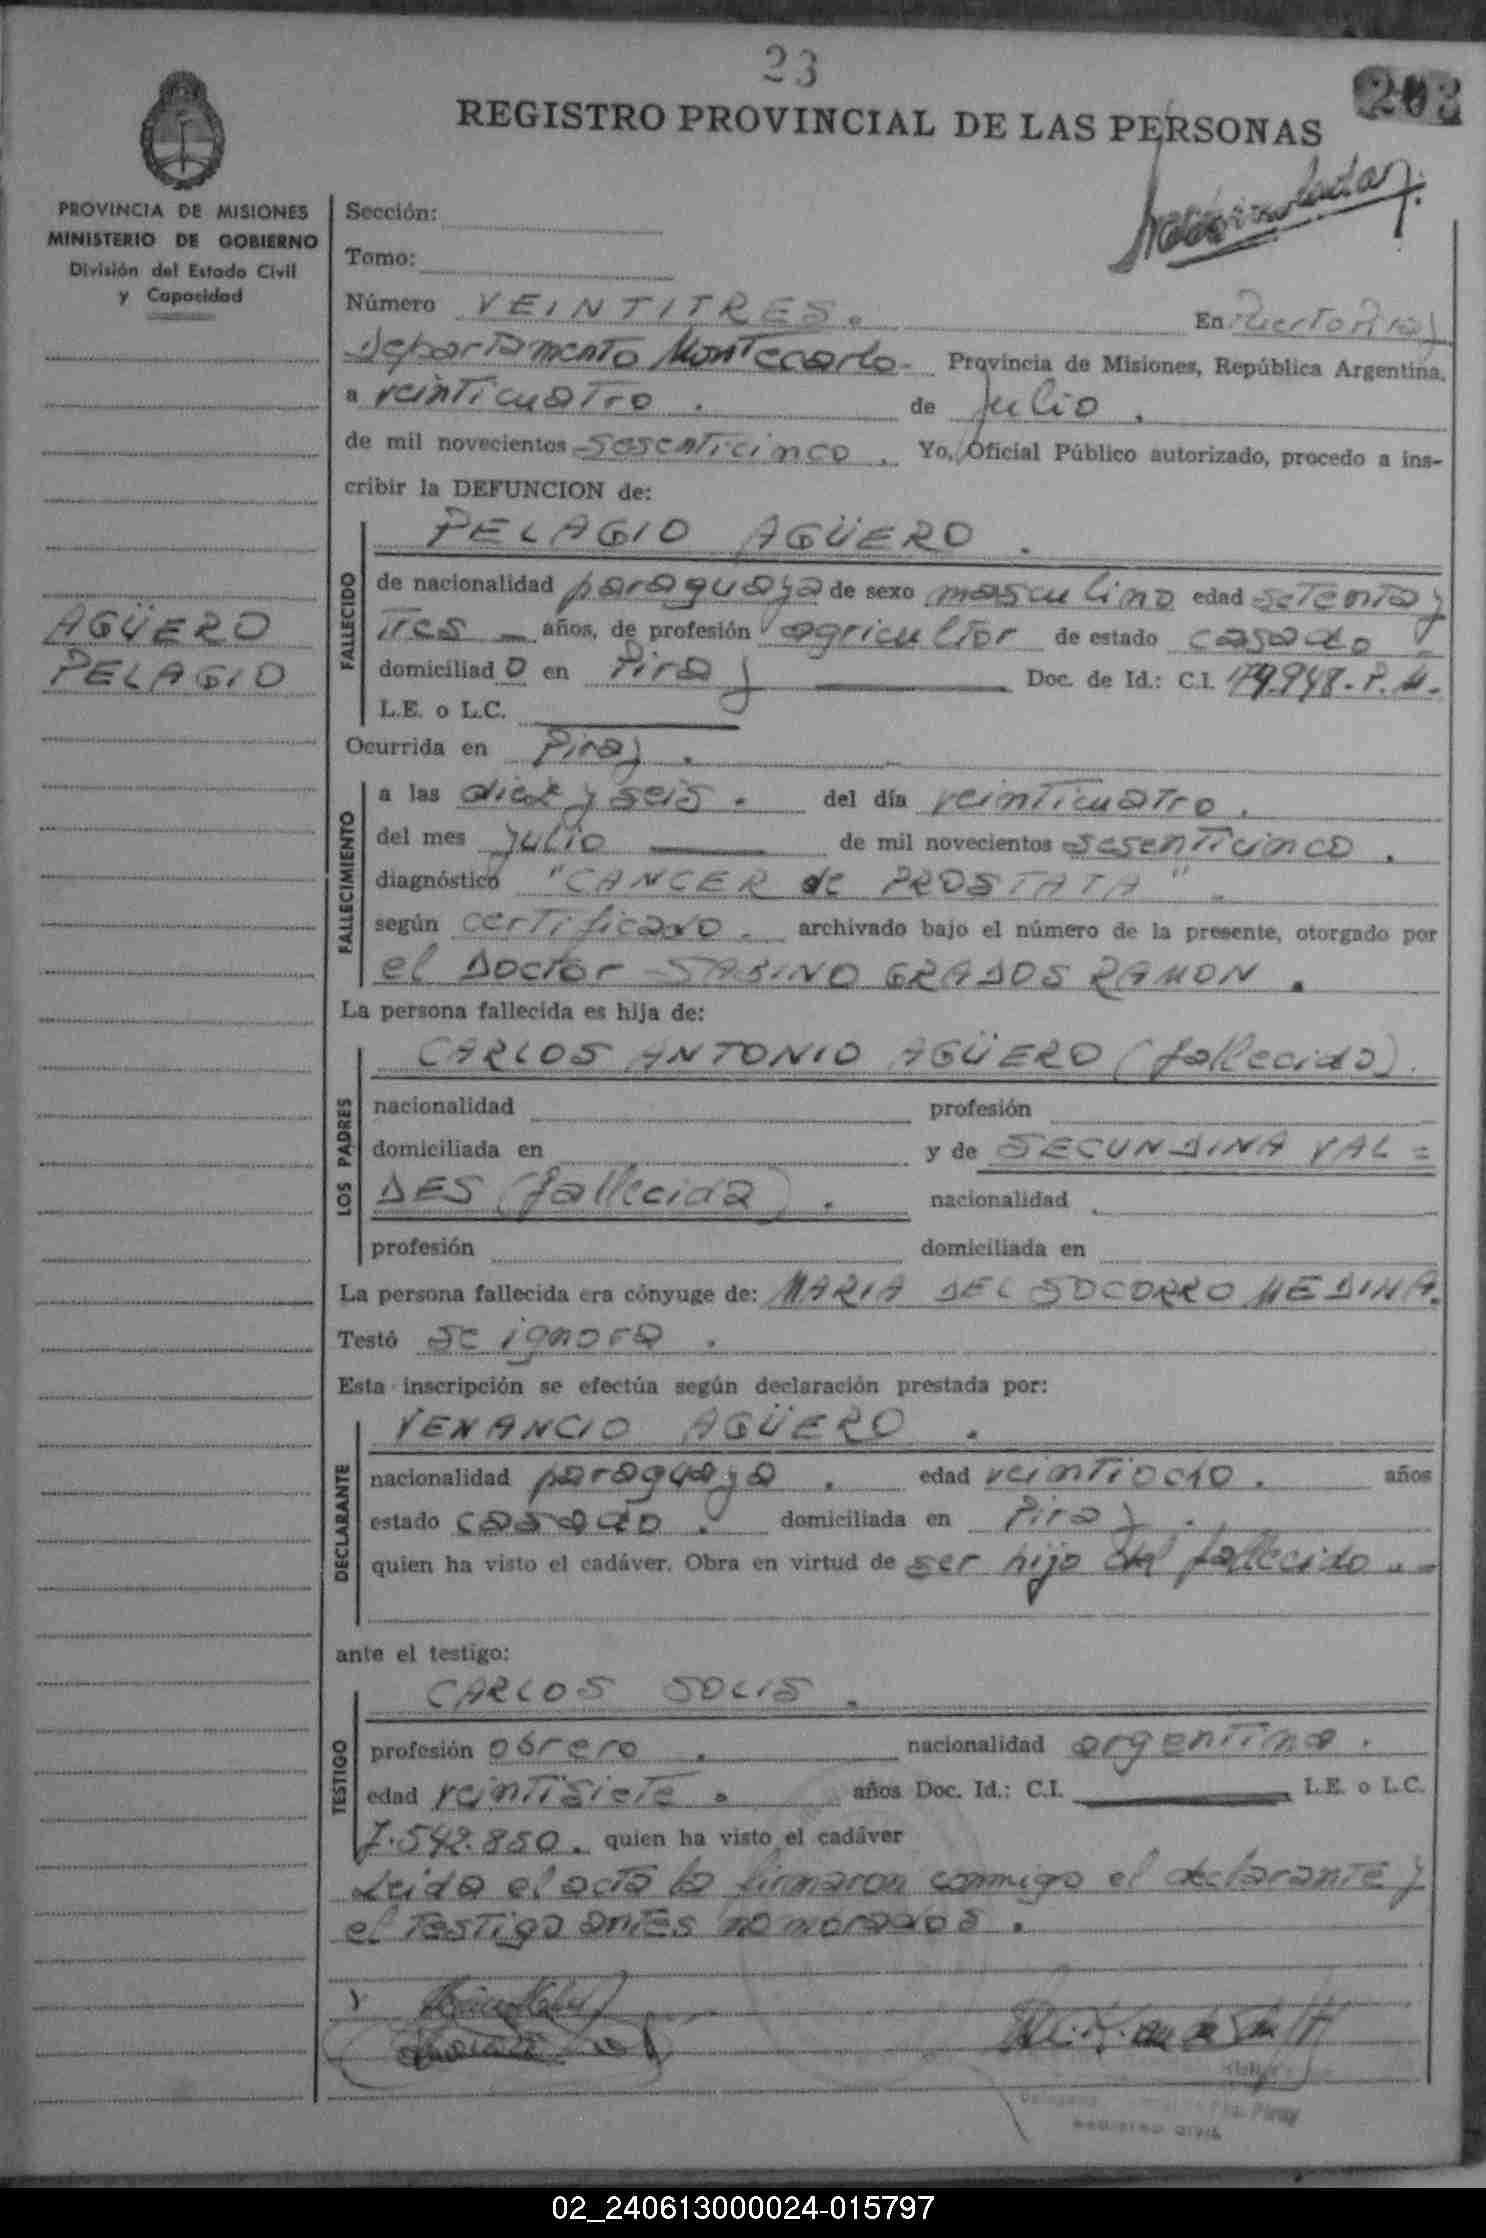 23
REGISTRO PROVINCIAL DE LAS PERSONAS
PROVINCIA DE MISIONES
MINISTERIO DE GOBIERNO
División del Estado Civil
y Capacidad
AGÜERO
PELAGIO
Sección:
Tomo:
Número VEINTITRES. En Puerto Piray
Departamento Montecarlo- Provincia de Misiones, República Argentina,
a veinticuatro. de Julio.
de mil novecientos sesenticinco. Yo, Oficial Público autorizado, procedo a ins-
cribir la DEFUNCION de:
FALLECIDO
PELAGIO AGÜERO.
de nacionalidad paraguaya de sexo masculino edad setenta y
tres - años, de profesión agricultor de estado casado
domiciliado en Piray Doc. de Id.: C.I.
L.E. o L.C.
Ocurrida en Piray.
FALLECIMIENTO
a las diez y seis. del día veinticuatro.
del mes Julio de mil novecientos sesenticinco.
diagnóstico "CANCER de PROSTATA".
según certificado. archivado bajo el número de la presente, otorgado por
el Doctor SABINO GRADOS RAMON.
La persona fallecida es hija de:
LOS PADRES
CARLOS ANTONIO AGÜERO (fallecido).
nacionalidad profesión
domiciliada en y de SECUNDINA VAL=
DES (fallecida). nacionalidad
profesión domiciliada en
La persona fallecida era cónyuge de: MARIA DEL SOCORRO MEDINA.
Testó se ignora.
Esta inscripción se efectúa según declaración prestada por:
DECLARANTE
VENANCIO AGÜERO.
nacionalidad paraguaya. edad veintiocho. años
estado casado. domiciliada en Piray.
quien ha visto el cadáver. Obra en virtud de ser hijo del fallecido.-
ante el testigo:
TESTIGO
CARLOS SOLIS.
profesión obrero. nacionalidad argentina.
edad veintisiete. años Doc. Id.: C.I. L.E. o L.C.
7.542.850. quien ha visto el cadáver
Leida el acta la firmaron conmigo el declarante y
el testigo antes nombrados.
02_240613000024-015797